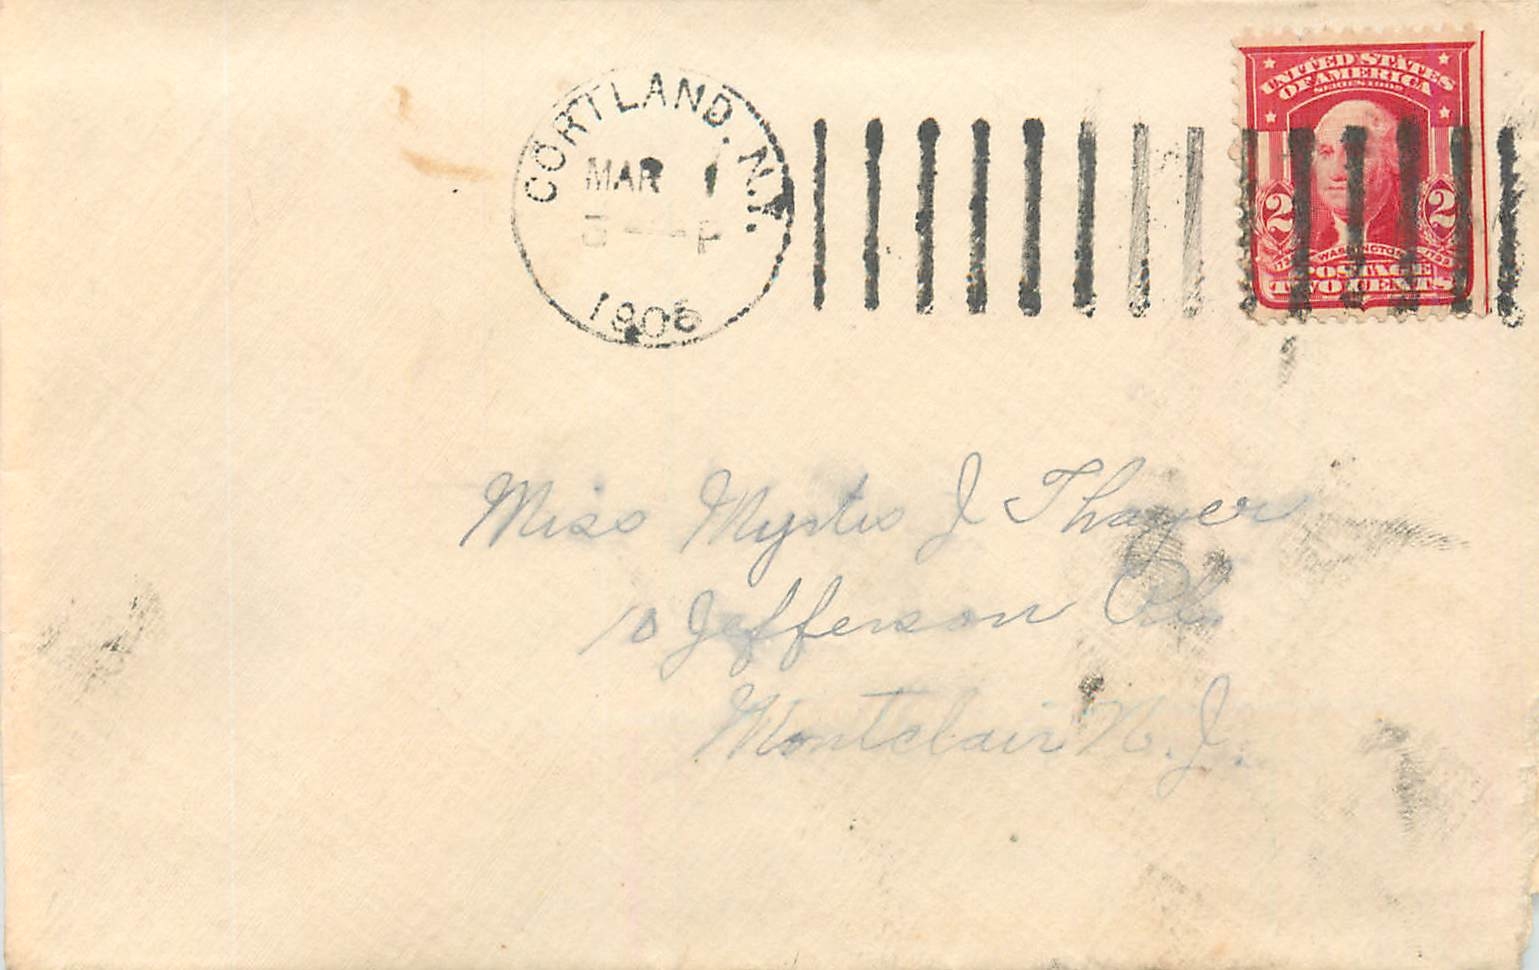 CORTLAND, N.Y.
MAR 1
1906
UNITED STATES
OF AMERICA
SERIES 1902
2 2
WASHINGTON
POSTAGE
TWO CENTS
Miss Myrtis J Thayer
10 Jefferson Pl.
Montclair N.J.